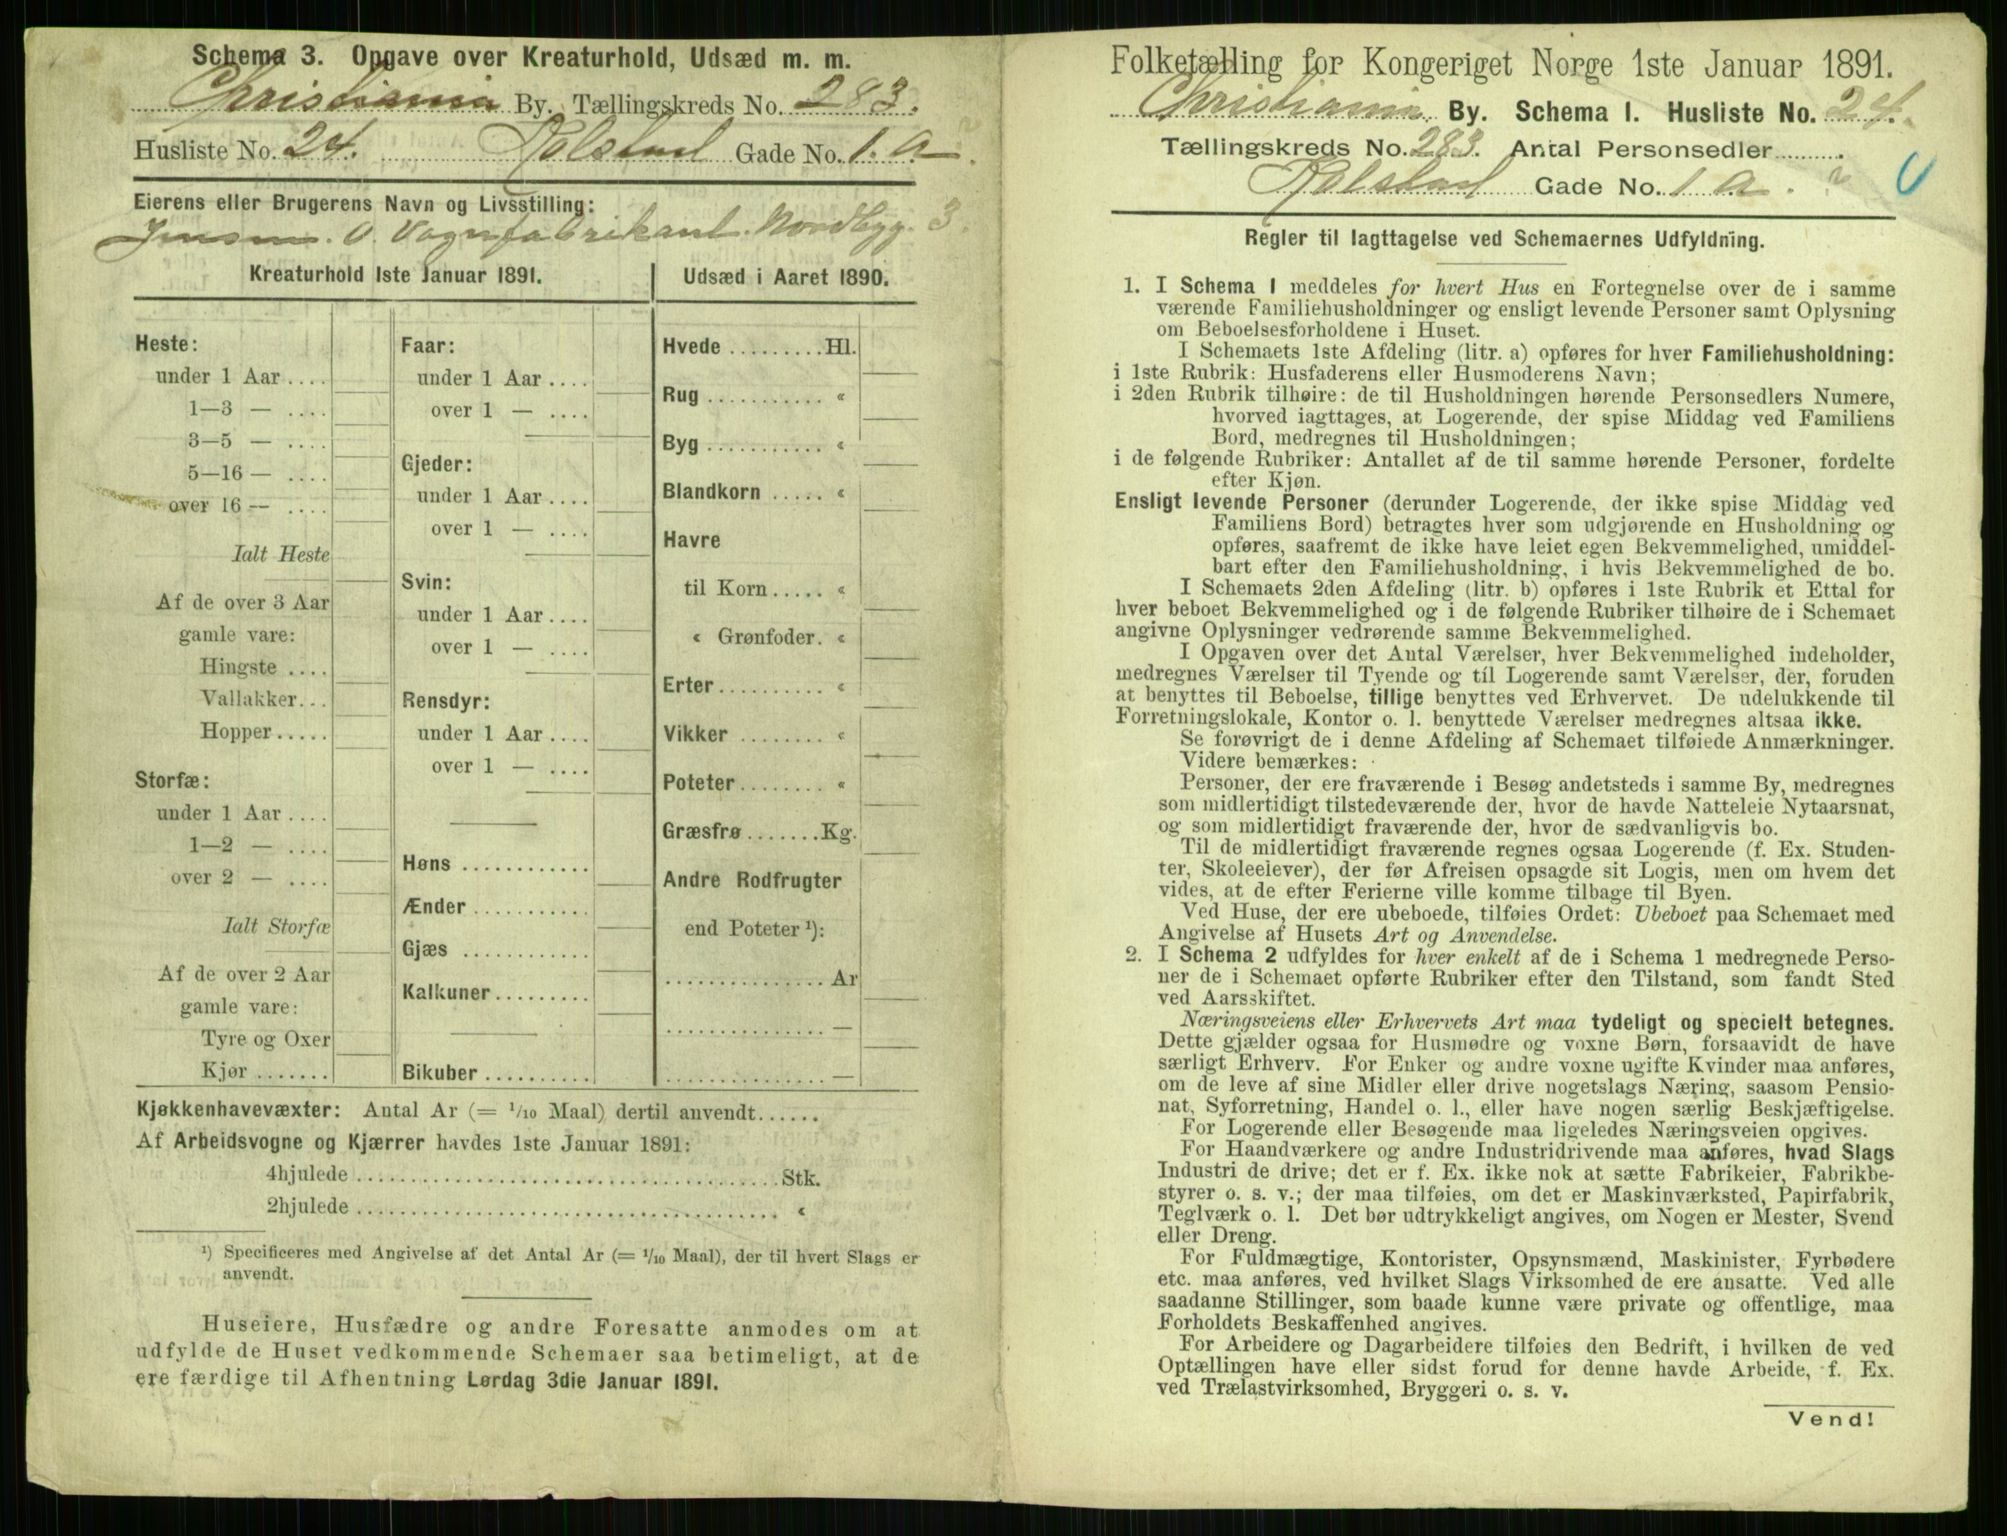 Schema 3. Opgave over Kreaturhold, Udsæd m. m.
Christiania By. Tællingskreds No. 283.
Husliste No. 24. Kolstad Gade No. 1. a.
Eierens eller Brugerens Navn og Livsstilling:
Jensen. O. Vognfabrikant. Nordbyg. 3.
Kreaturhold 1ste Januar 1891.
Heste:
under 1 Aar ....
1—3 — ....
3—5 — ....
5—16 — ....
over 16 — ....
Ialt Heste
Af de over 3 Aar
gamle vare:
Hingste ....
Vallakker...
Hopper.....
Storfæ:
under 1 Aar ....
1—2 — ....
over 2 — ....
Ialt Storfæ
Af de over 2 Aar
gamle vare:
Tyre og Oxer
Kjør .......
Faar:
under 1 Aar ....
over 1 — ....
Gjeder:
under 1 Aar ....
over 1 — ....
Svin:
under 1 Aar ....
over 1 — ....
Rensdyr:
under 1 Aar ....
over 1 — ....
Høns ............
Ænder ...........
Gjæs ............
Kalkuner.........
Bikuber ..........
Udsæd i Aaret 1890.
Hvede .........Hl.
Rug ........... «
Byg ........... «
Blandkorn ..... «
Havre
til Korn..... «
« Grønfoder. «
Erter.......... «
Vikker ........ «
Poteter........ «
Græsfrø.......Kg.
Andre Rodfrugter
end Poteter ¹):
............... Ar
............... —
............... —
Kjøkkenhavevæxter: Antal Ar (= 1/10 Maal) dertil anvendt......
Af Arbeidsvogne og Kjærrer havdes 1ste Januar 1891:
4hjulede ....................................... Stk.
2hjulede ....................................... «
¹) Specificeres med Angivelse af det Antal Ar (= 1/10 Maal), der til hvert Slags er
anvendt.
Huseiere, Husfædre og andre Foresatte anmodes om at
udfylde de Huset vedkommende Schemaer saa betimeligt, at de
ere færdige til Afhentning Lørdag 3die Januar 1891.
Folketælling for Kongeriget Norge 1ste Januar 1891.
Christiania By. Schema I. Husliste No. 24.
Tællingskreds No. 283. Antal Personsedler .........
Kolstad Gade No. 1 a.
Regler til Iagttagelse ved Schemaernes Udfyldning.
1. I Schema I meddeles for hvert Hus en Fortegnelse over de i samme
værende Familiehusholdninger og ensligt levende Personer samt Oplysning
om Beboelsesforholdene i Huset.
I Schemaets 1ste Afdeling (litr. a) opføres for hver Familiehusholdning:
i 1ste Rubrik: Husfaderens eller Husmoderens Navn;
i 2den Rubrik tilhøire: de til Husholdningen hørende Personsedlers Numere,
hvorved iagttages, at Logerende, der spise Middag ved Familiens
Bord, medregnes til Husholdningen;
i de følgende Rubriker: Antallet af de til samme hørende Personer, fordelte
efter Kjøn.
Ensligt levende Personer (derunder Logerende, der ikke spise Middag ved
Familiens Bord) betragtes hver som udgjørende en Husholdning og
opføres, saafremt de ikke have leiet egen Bekvemmelighed, umiddel-
bart efter den Familiehusholdning, i hvis Bekvemmelighed de bo.
I Schemaets 2den Afdeling (litr. b) opføres i 1ste Rubrik et Ettal for
hver beboet Bekvemmelighed og i de følgende Rubriker tilhøire de i Schemaet
angivne Oplysninger vedrørende samme Bekvemmelighed.
I Opgaven over det Antal Værelser, hver Bekvemmelighed indeholder,
medregnes Værelser til Tyende og til Logerende samt Værelser, der, foruden
at benyttes til Beboelse, tillige benyttes ved Erhvervet. De udelukkende til
Forretningslokale, Kontor o. l. benyttede Værelser medregnes altsaa ikke.
Se forøvrigt de i denne Afdeling af Schemaet tilføiede Anmærkninger.
Videre bemærkes:
Personer, der ere fraværende i Besøg andetsteds i samme By, medregnes
som midlertidigt tilstedeværende der, hvor de havde Natteleie Nytaarsnat,
og som midlertidigt fraværende der, hvor de sædvanligvis bo.
Til de midlertidigt fraværende regnes ogsaa Logerende (f. Ex. Studen-
ter, Skoleelever), der før Afreisen opsagde sit Logis, men om hvem det
vides, at de efter Ferierne ville komme tilbage til Byen.
Ved Huse, der ere ubeboede, tilføies Ordet: Ubeboet paa Schemaet med
Angivelse af Husets Art og Anvendelse.
2. I Schema 2 udfyldes for hver enkelt af de i Schema 1 medregnede Perso-
ner de i Schemaet opførte Rubriker efter den Tilstand, som fandt Sted
ved Aarsskiftet.
Næringsveiens eller Erhvervets Art maa tydeligt og specielt betegnes.
Dette gjælder ogsaa for Husmødre og voxne Børn, forsaavidt de have
særligt Erhverv. For Enker og andre voxne ugifte Kvinder maa anføres,
om de leve af sine Midler eller drive nogetslags Næring, saasom Pensio-
nat, Syforretning, Handel o. l., eller have nogen særlig Beskjæftigelse.
For Logerende eller Besøgende maa ligeledes Næringsveien opgives.
For Haandværkere og andre Industridrivende maa anføres, hvad Slags
Industri de drive; det er f. Ex. ikke nok at sætte Fabrikeier, Fabrikbe-
styrer o. s. v.; der maa tilføies, om det er Maskinværksted, Papirfabrik,
Teglværk o. l. Det bør udtrykkeligt angives, om Nogen er Mester, Svend
eller Dreng.
For Fuldmægtige, Kontorister, Opsynsmænd, Maskinister, Fyrbødere
etc. maa anføres, ved hvilket Slags Virksomhed de ere ansatte. Ved alle
saadanne Stillinger, som baade kunne være private og offentlige, maa
Forholdets Beskaffenhed angives.
For Arbeidere og Dagarbeidere tilføies den Bedrift, i hvilken de ved
Optællingen have eller sidst forud for denne havde Arbeide, f. Ex.
ved Trælastvirksomhed, Bryggeri o. s. v.
Vend!